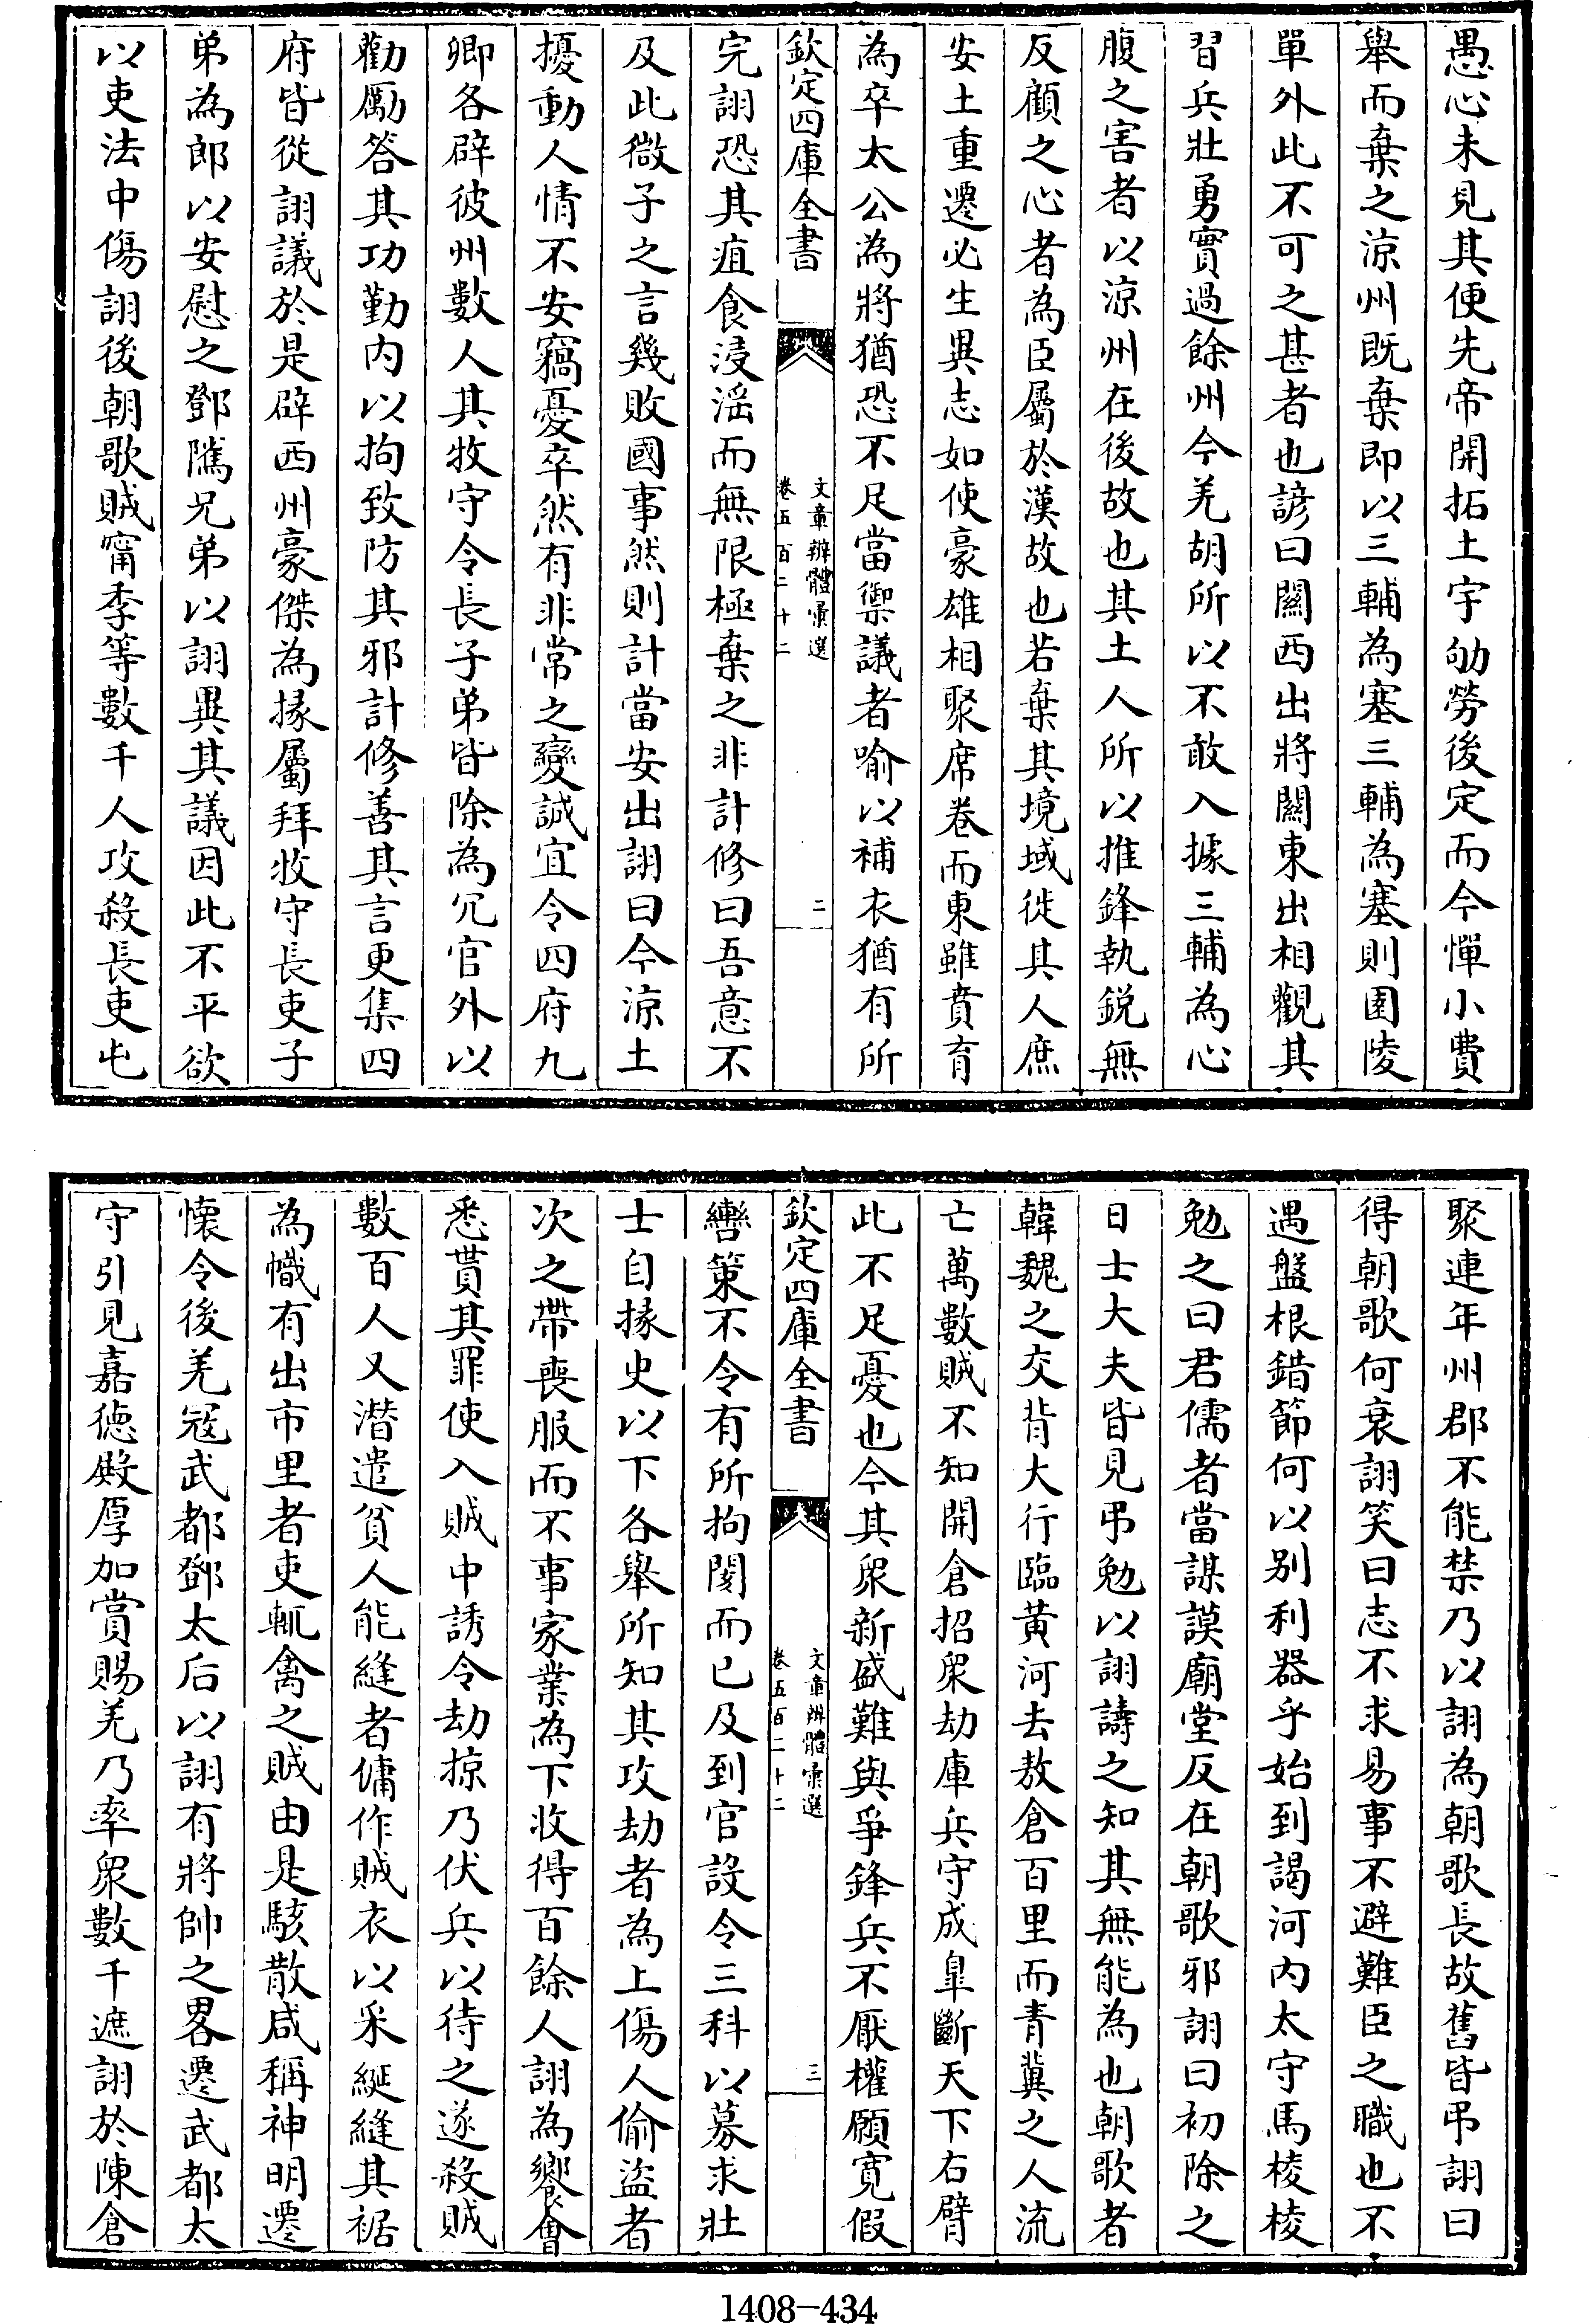 愚心未見其便先帝開拓土宇劬勞後定而今憚小費
舉而棄之涼州既棄即以三輔為塞三輔為塞則園陵
單外此不可之甚者也諺曰關西出將關東出相觀其
習兵壯勇實過餘州今羌胡所以不敢入據三輔為心
腹之害者以涼州在後故也其土人所以推鋒執鋭無
反顧之心者為臣屬於漢故也若棄其境域徙其人庶
安土重遷必生異志如使豪雄相聚席卷而東雖賁育
為卒太公為將猶恐不足當禦議者喻以補衣猶有所
欽定四庫全書
文章辨體彙選
卷五百二十二
二
完詡恐其疽食浸淫而無限極棄之非計修曰吾意不
及此微子之言幾敗國事然則計當安出詡曰今涼土
擾動人情不安竊憂卒然有非常之變誠宜令四府九
卿各辟彼州數人其牧守令長子弟皆除為冗官外以
勸勵答其功勤内以拘致防其邪計修善其言更集四
府皆從詡議於是辟西州豪傑為掾屬拜牧守長吏子
弟為郎以安慰之鄧隲兄弟以詡異其議因此不平欲
以吏法中傷詡後朝歌賊甯季等數千人攻殺長吏屯
聚連年州郡不能禁乃以詡為朝歌長故舊皆弔詡曰
得朝歌何衰詡笑曰志不求易事不避難臣之職也不
遇盤根錯節何以别利器乎始到謁河内太守馬棱棱
勉之曰君儒者當謀謨廟堂反在朝歌邪詡曰初除之
日士大夫皆見弔勉以詡譸之知其無能為也朝歌者
韓魏之交背大行臨黄河去敖倉百里而青冀之人流
亡萬數賊不知開倉招衆劫庫兵守成臯斷天下右臂
此不足憂也今其衆新盛難與爭鋒兵不厭權願寛假
欽定四庫全書
文章辨體彙選
卷五百二十二
三
轡策不令有所拘閡而已及到官設令三科以募求壯
士自掾史以下各舉所知其攻劫者為上傷人偷盜者
次之帶喪服而不事家業為下收得百餘人詡為饗會
悉貰其罪使入賊中誘令劫掠乃伏兵以待之遂殺賊
數百人又潛遣貧人能縫者傭作賊衣以采綖縫其裾
為幟有出市里者吏輒禽之賊由是駭散咸稱神明遷
懐令後羌冦武都鄧太后以詡有將帥之畧遷武都太
守引見嘉德殿厚加賞賜羌乃率衆數千遮詡於陳倉
1408-434